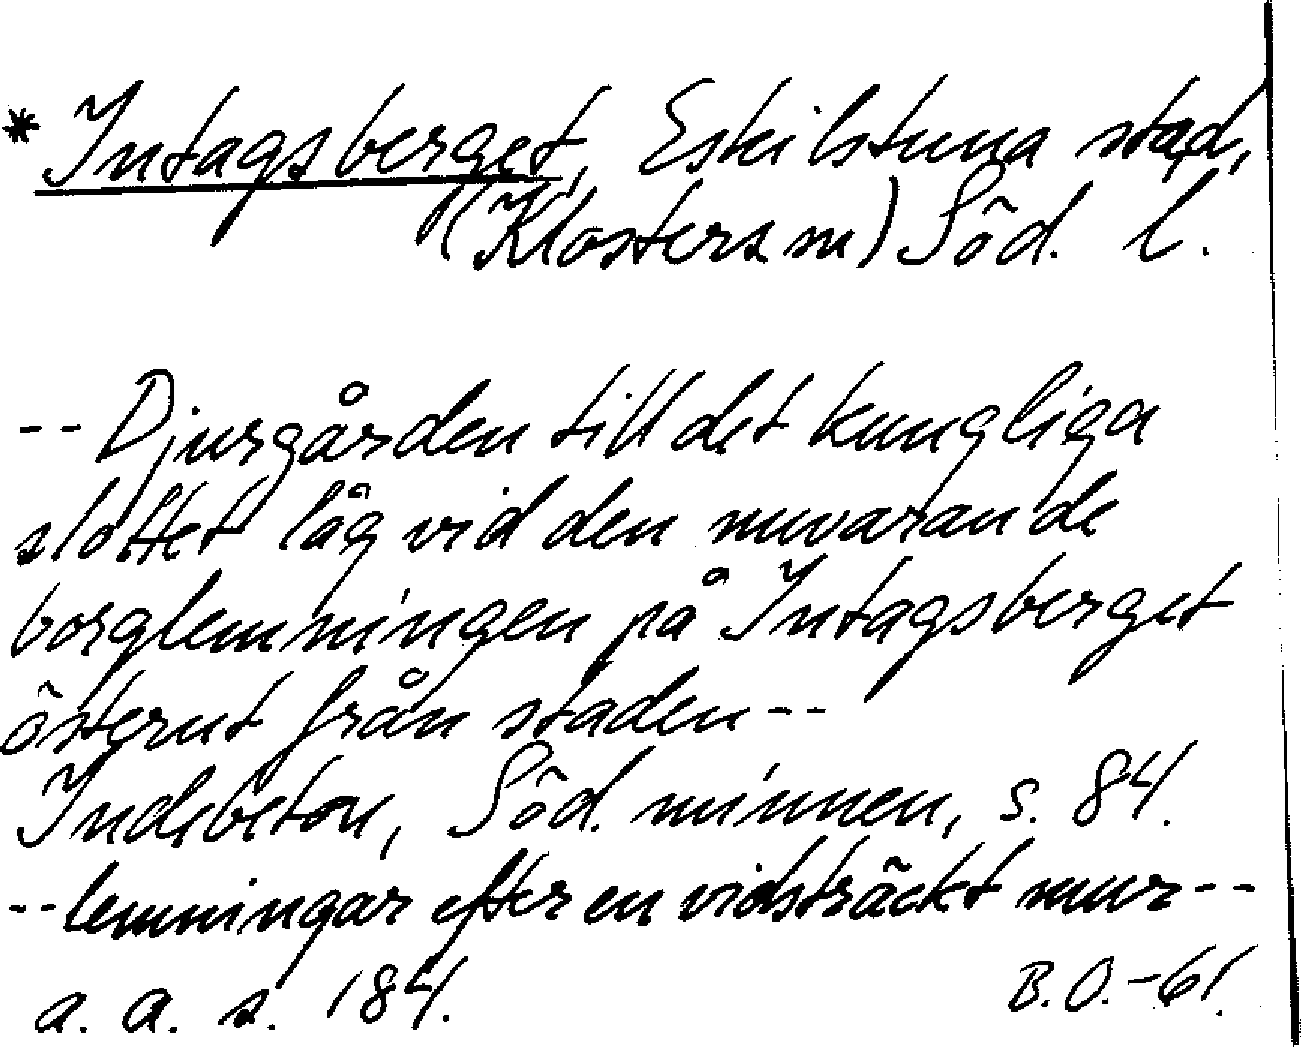 * Intagsberget, Eskilstuna stad,
(Klosters sn) Söd. l.
-- Djurgården till det kungliga
slottet låg vid den nuvarande
borglemningen på Intagsberget
österut från staden --
Indebetou, Söd. minnen, s. 84.
-- lemningar efter en vidsträckt mur --
a. a. s. 184.
B. O. -61.